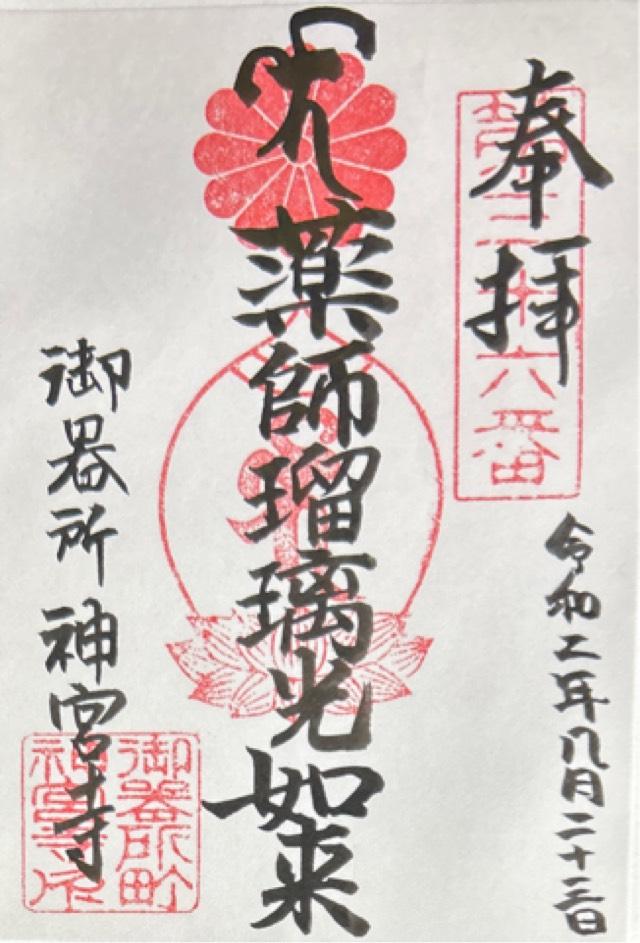 奉拝
十六番
令和五年八月二十三日
薬師瑠璃光如来
御器所 神宮寺
御器所町
神宮寺印